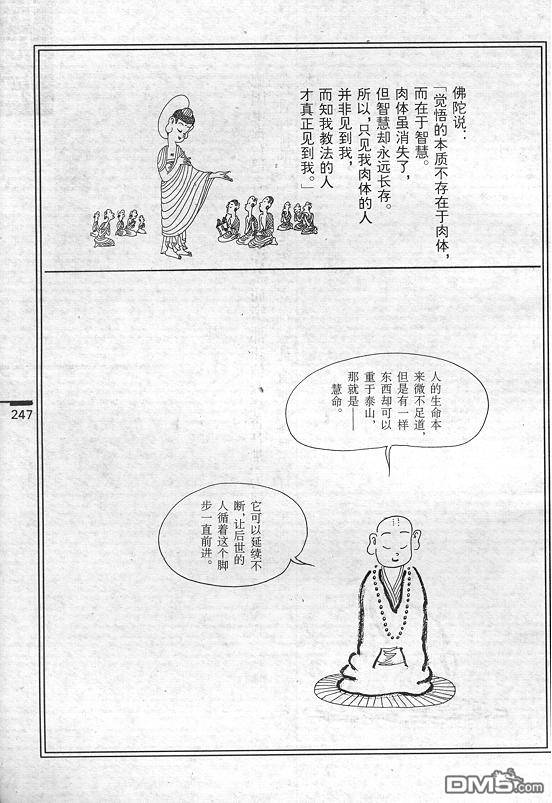 佛陀说：
「觉悟的本质不存在于肉体，
而在于智慧。
肉体虽消失了，
但智慧却永远长存。
所以，只见我肉体的人
并非见到我，
而知我教法的人
才真正见到我。」
人的生命本
来微不足道，
但是有一样
东西却可以
重于泰山，
那就是——
慧命。
它可以延续不
断，让后世的
人循着这个脚
步一直前进。
247
DM5.com